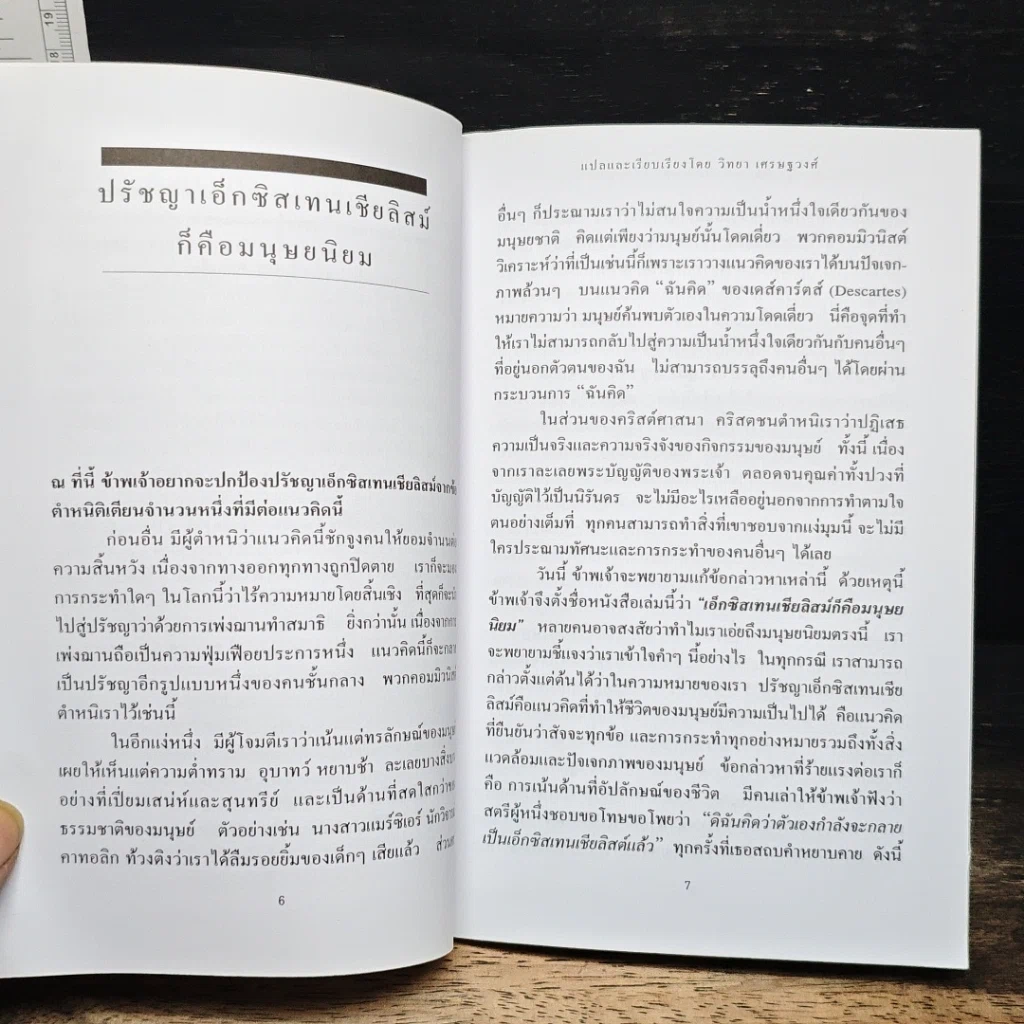 19
8
ปรัชญาเอ็กซิสเทนเชียลิสม์
ก็คือมนุษยนิยม
ณ ที่นี้ ข้าพเจ้าอยากจะปกป้องปรัชญาเอ็กซิสเทนเชียลิสม์จากข้อ
ตำหนิติเตียนจำนวนหนึ่งที่มีต่อแนวคิดนี้
ก่อนอื่น มีผู้ตำหนิว่าแนวคิดนี้ชักจูงคนให้ยอมจำนนต่อ
ความสิ้นหวัง เนื่องจากทางออกทุกทางถูกปิดตาย เราก็จะมอง
การกระทำใดๆ ในโลกนี้ว่าไร้ความหมายโดยสิ้นเชิง ที่สุดก็จะนำ
ไปสู่ปรัชญาว่าด้วยการเพ่งฌานทำสมาธิ ยิ่งกว่านั้น เนื่องจากการ
เพ่งฌานถือเป็นความฟุ่มเฟือยประการหนึ่ง แนวคิดนี้ก็จะกลาย
เป็นปรัชญาอีกรูปแบบหนึ่งของคนชั้นกลาง พวกคอมมิวนิสต์
ตำหนิเราไว้เช่นนี้
ในอีกแง่หนึ่ง มีผู้โจมตีเราว่าเน้นแต่ทรลักษณ์ของมนุษย์
เผยให้เห็นแต่ความต่ำทราม อุบาทว์ หยาบช้า ละเลยบางสิ่งบาง
อย่างที่เปี่ยมเสน่ห์และสุนทรีย์ และเป็นด้านที่สดใสกว่าของ
ธรรมชาติของมนุษย์ ตัวอย่างเช่น นางสาวแมร์ซิเอร์ นักวิจารณ์
คาทอลิก ท้วงติงว่าเราได้ลืมรอยยิ้มของเด็กๆ เสียแล้ว ส่วนคน
6
แปลและเรียบเรียงโดย วิทยา เศรษฐวงศ์
อื่นๆ ก็ประณามเราว่าไม่สนใจความเป็นน้ำหนึ่งใจเดียวกันของ
มนุษยชาติ คิดแต่เพียงว่ามนุษย์นั้นโดดเดี่ยว พวกคอมมิวนิสต์
วิเคราะห์ว่าที่เป็นเช่นนี้ก็เพราะเราวางแนวคิดของเราไว้บนปัจเจก-
ภาพล้วนๆ บนแนวคิด “ฉันคิด” ของเดส์คาร์ตส์ (Descartes)
หมายความว่า มนุษย์ค้นพบตัวเองในความโดดเดี่ยว นี่คือจุดที่ทำ
ให้เราไม่สามารถกลับไปสู่ความเป็นน้ำหนึ่งใจเดียวกันกับคนอื่นๆ
ที่อยู่นอกตัวตนของฉัน ไม่สามารถบรรลุถึงคนอื่นๆ ได้โดยผ่าน
กระบวนการ “ฉันคิด”
ในส่วนของคริสต์ศาสนา คริสตชนตำหนิเราว่าปฏิเสธ
ความเป็นจริงและความจริงจังของกิจกรรมของมนุษย์ ทั้งนี้ เนื่อง
จากเราละเลยพระบัญญัติของพระเจ้า ตลอดจนคุณค่าทั้งปวงที่
บัญญัติไว้เป็นนิรันดร จะไม่มีอะไรเหลืออยู่นอกจากการทำตามใจ
ตนอย่างเต็มที่ ทุกคนสามารถทำสิ่งที่เขาชอบจากแง่มุมนี้ จะไม่มี
ใครประณามทัศนะและการกระทำของคนอื่นๆ ได้เลย
วันนี้ ข้าพเจ้าจะพยายามแก้ข้อกล่าวหาเหล่านี้ ด้วยเหตุนี้
ข้าพเจ้าจึงตั้งชื่อหนังสือเล่มนี้ว่า “เอ็กซิสเทนเชียลิสม์ก็คือมนุษย
นิยม” หลายคนอาจสงสัยว่าทำไมเราเอ่ยถึงมนุษยนิยมตรงนี้ เรา
จะพยายามชี้แจงว่าเราเข้าใจคำๆ นี้อย่างไร ในทุกกรณี เราสามารถ
กล่าวตั้งแต่ต้นได้ว่าในความหมายของเรา ปรัชญาเอ็กซิสเทนเชีย
ลิสม์คือแนวคิดที่ทำให้ชีวิตของมนุษย์มีความเป็นไปได้ คือแนวคิด
ที่ยืนยันว่าสัจจะทุกข้อ และการกระทำทุกอย่างหมายรวมถึงทั้งสิ่ง
แวดล้อมและปัจเจกภาพของมนุษย์ ข้อกล่าวหาที่ร้ายแรงต่อเราก็
คือ การเน้นด้านที่อัปลักษณ์ของชีวิต มีคนเล่าให้ข้าพเจ้าฟังว่า
สตรีผู้หนึ่งชอบขอโทษขอโพยว่า “ดิฉันคิดว่าตัวเองกำลังจะกลาย
เป็นเอ็กซิสเทนเชียลิสต์แล้ว” ทุกครั้งที่เธอสถบคำหยาบคาย ดังนี้
7